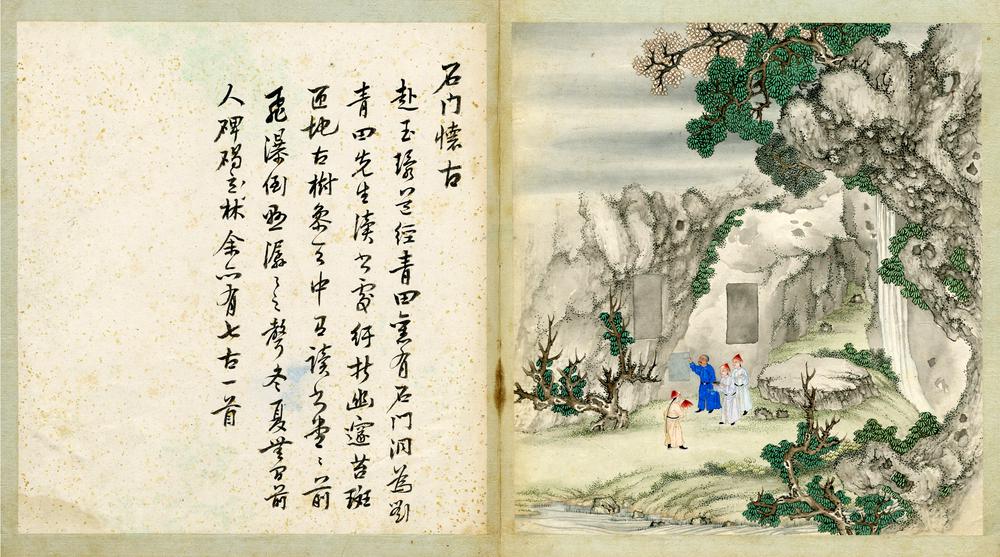 石门懷古
赴玉環道經青田邑有石门洞為劉
青田先生讀书處紆折幽邃苔斑
匝地古樹参天中有读书堂堂前
飛瀑倒懸潺潺之聲冬夏無间前
人碑碣如林余亦有七古一首